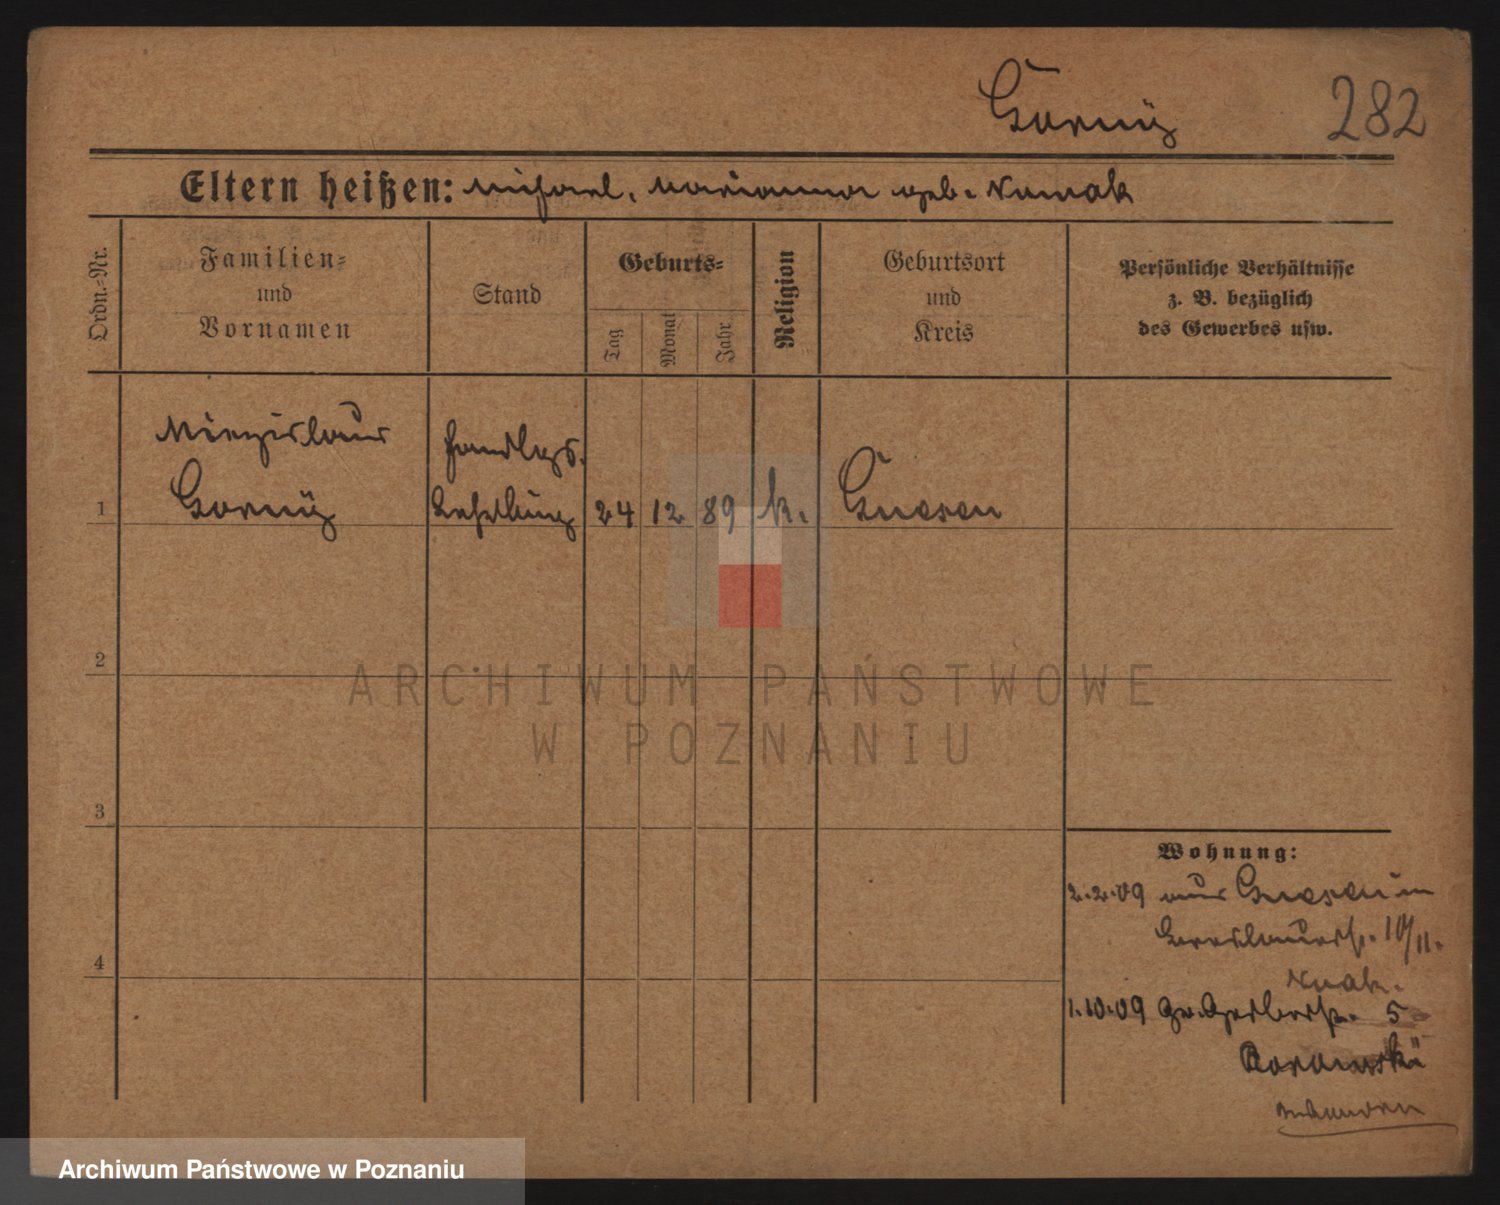 Górny
282
Eltern heißen: Michael, Marianna geb. Nowak
Ordn.-Nr.
Familien-
und
Vornamen
Stand
Geburts-
Tag
Monat
Jahr
Religion
Geburtsort
und
Kreis
Persönliche Verhältnisse
z. B. bezüglich
des Gewerbes usw.
Miezislaus
Górny
Handlgs.
Lehrling
1
24 12 89 k.
Gnesen
2
3
4
Wohnung:
2.2.09 aus Gnesen in
Breslauerstr. 10/11.
Nwak.
1.10.09 Gr. Gerberstr. 5
ARCHIWUM PAŃSTWOWE
W POZNANIU
Archiwum Państwowe w Poznaniu